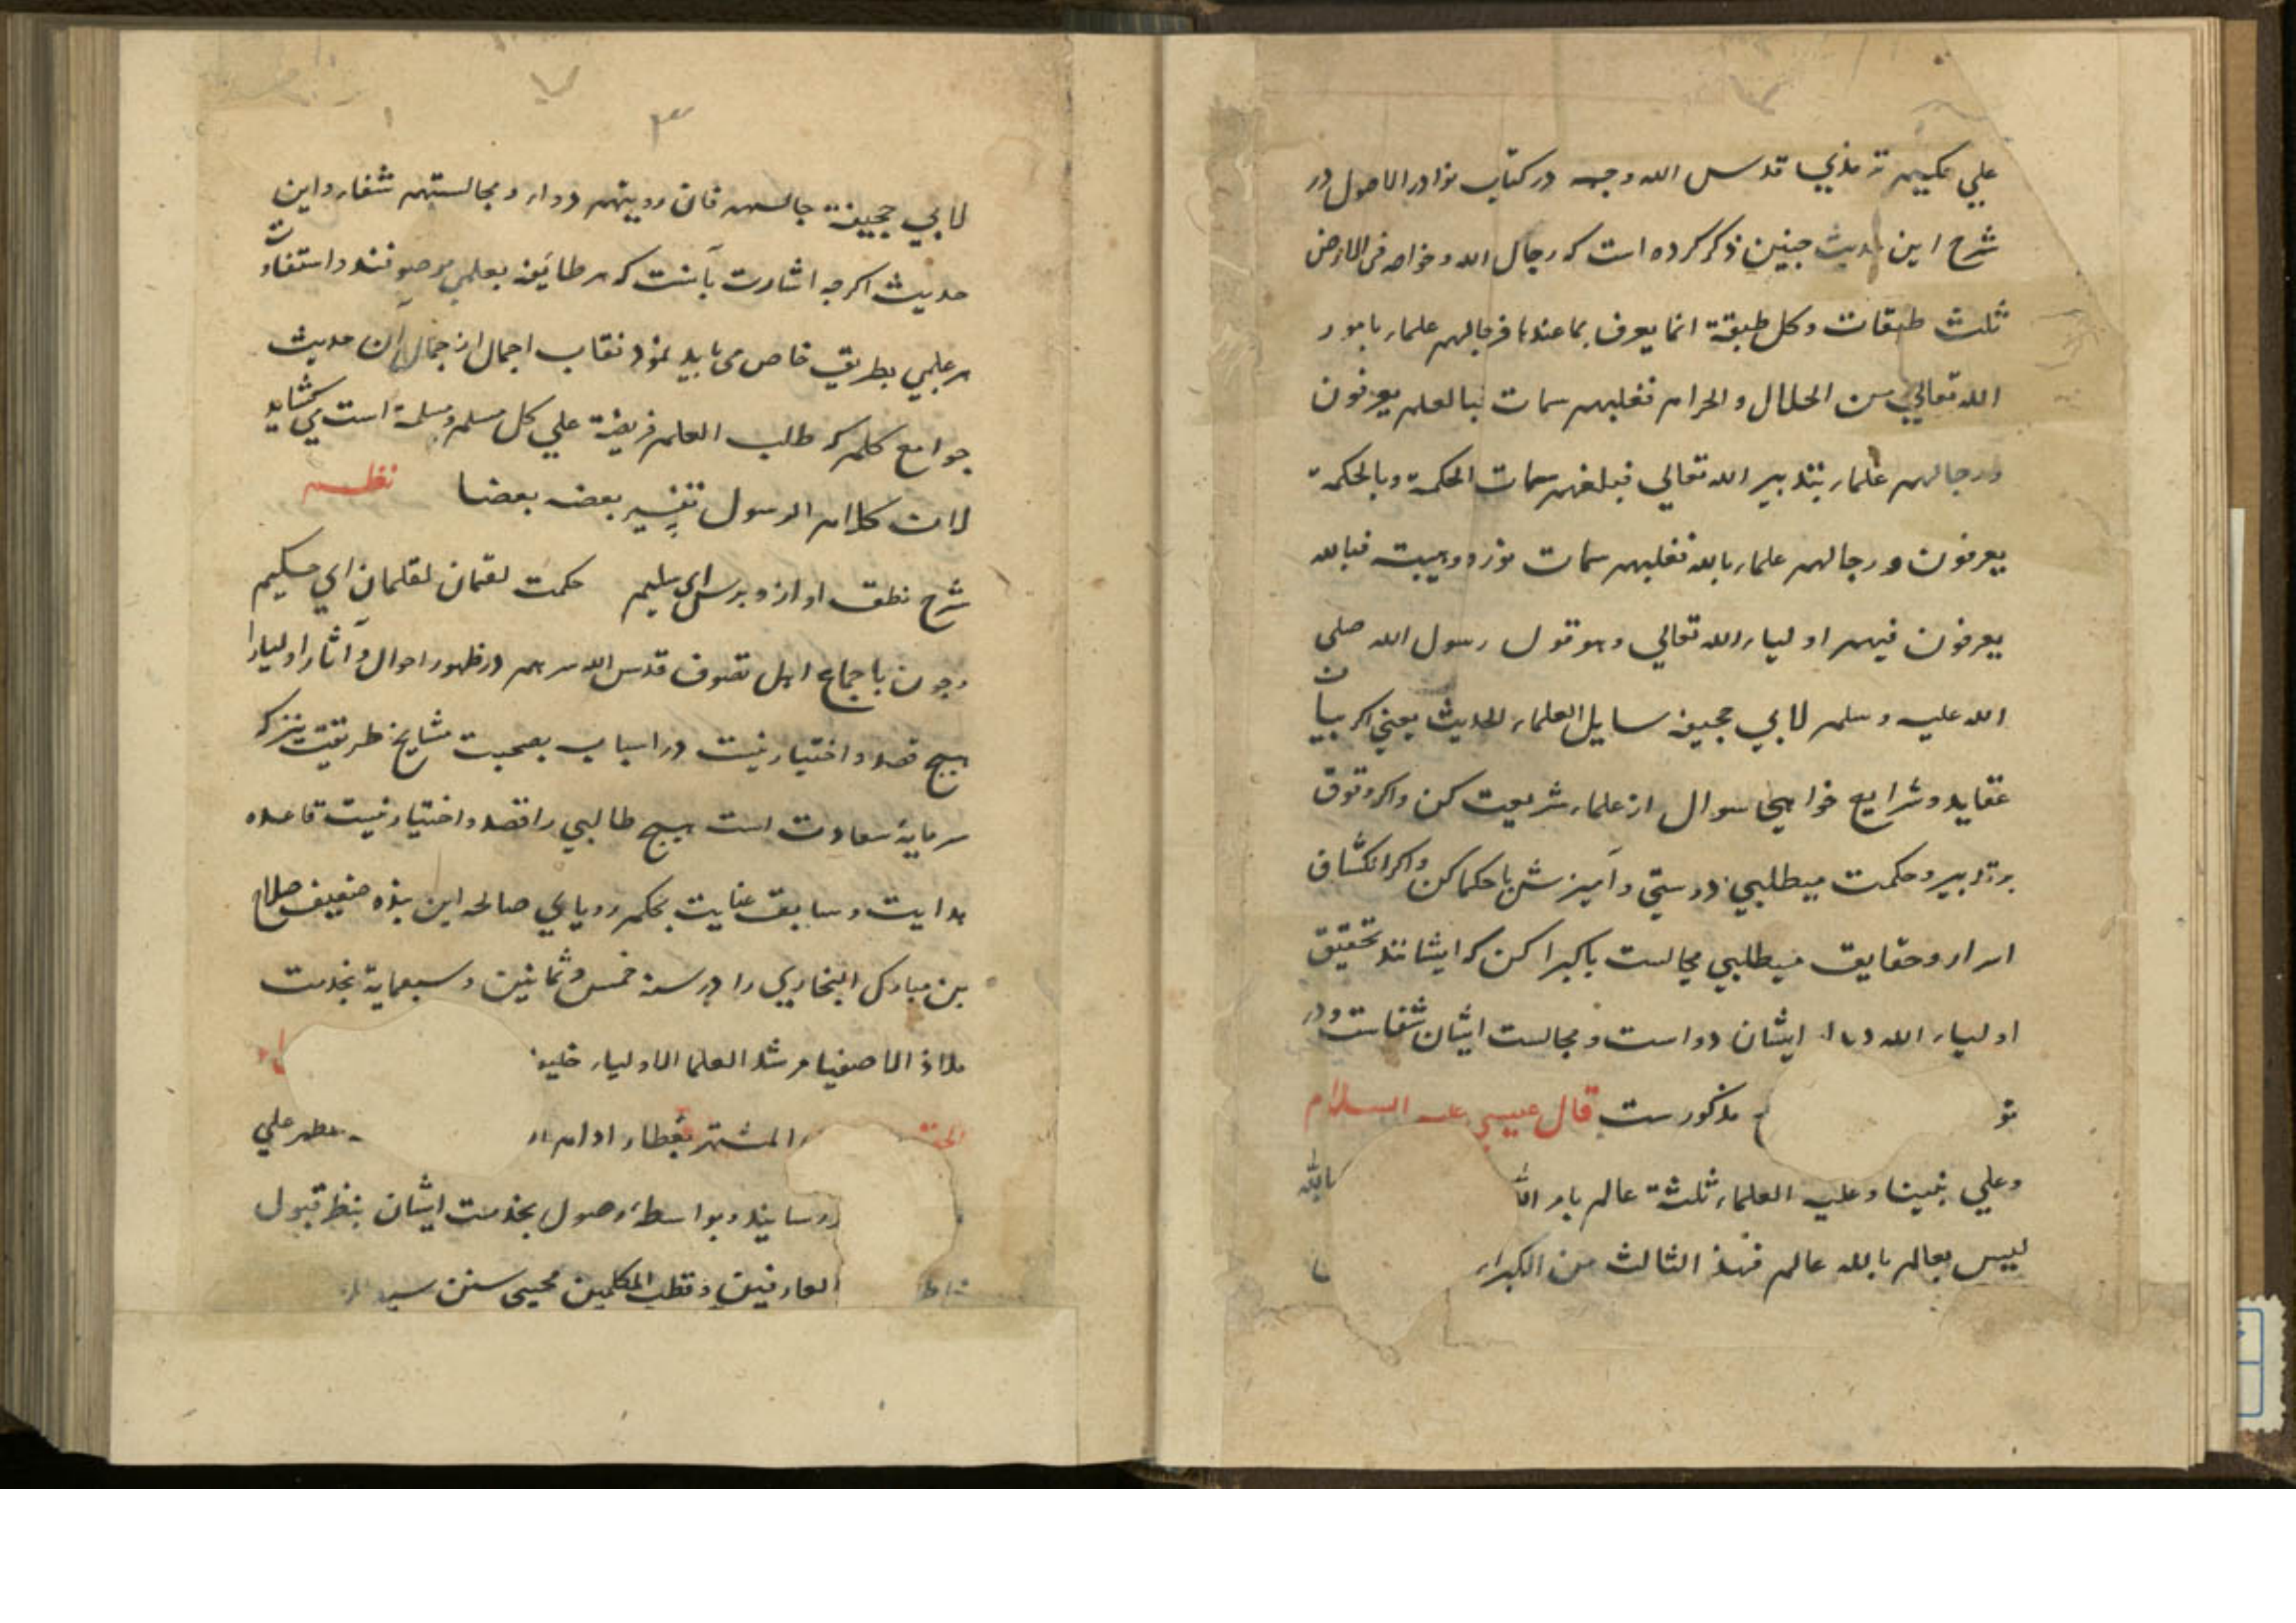 علي حكيم ترمذي قدس الله وجهه در كتاب نوادر الاصول در
شرح اين حديث چنين ذكر كرده است كه رجال الله و خواصه فى الارض
ثلث طبقات و كل طبقة انما يعرف بما عندها فرجالهم علماء بامور
الله تعالي من الحلال و الحرام فعليهم سمات فبالعلم يعرفون
ورجالهم علماء بتدبير الله تعالي فعليهم سمات الحكمة وبالحكمة
يعرفون و رجالهم علماء بالله فعليهم سمات نور و هيبت فبالله
يعرفون فيهم اولياء الله تعالي وهو قول رسول الله صلى
الله عليه وسلم لابي جحيفه سايل العلماء الحديث يعني اكر بيان
عقايد و شرايع خواهي سوال از علماء شريعت كن و اكر وقوف
بر تدبير و حكمت ميطلبي دوستي و آميزش با حكما كن و اكر انكشاف
اسرار و حقايق ميطلبي مجالست با كبرا كن كه ايشانند تحقيق
اولياء الله ايشان دواست و مجالست ايشان شفاست و در
مذكورست قال عيسي عليه السلام
وعلي نبينا وعليه العلماء ثلثة عالم بامر الله بالله
ليس بعالم بالله عالم فهذا الثالث من الكبراء
٣
لابي جحيفة جالسهم فان رويتهم دواء و مجالستهم شفاء و اين
حديث اكرچه اشارت بآنست كه هر طائفه بعلمي موصوفند و استفادت
هر علمي بطريق خاص مى بايد نمود نقاب اجمال از جمال آن حديث
جوامع كلم كه طلب العلم فريضة علي كل مسلم و مسلمة است مي كشايد
لان كلام الرسول تفسير بعضه بعضا نظم
شرح نطق او ازو پرس اي سليم حكمت لقمان لقلمان اي حكيم
و چون باجماع اهل تصوف قدس الله سرهم در ظهور احوال و آثار اوليا را
هيچ قصد و اختيار نيست در اسباب بصحبت مشايخ طريقت نيز كه
سرمايهٔ سعادت است هيچ طالبي را قصد و اختيار نيست قاعده
هدايت و سابق عنايت بحكم روياي صالحه اين بنده ضعيف صلاح
بن مبارك البخاري را در سنه خمس و ثمانين و سبعماية بخدمت
ملاذ الاصفيا مرشد العلما الاولياء خليفه
المشتهر بعطار ادام علي
رسانيد و بواسطهٔ وصول بخدمت ايشان بنظر قبول
العارفين و قطب المكلمين محيى سنن سيد